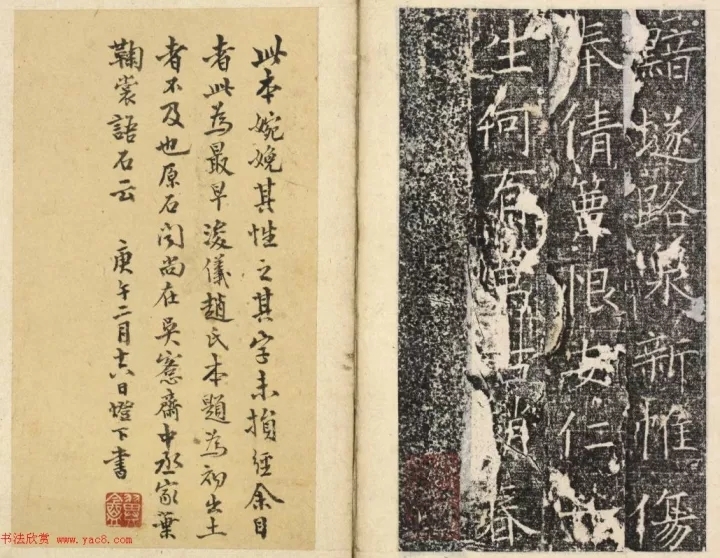 黯墢路㴾新惟傷
奉倩萆恨女仁
生何有春
此本婉娩其性之其字未損經余目
者此為最早浚儀趙氏本題為初出土
者不及也原石聞尚在吳愙齋中丞家葉
鞠裳語石云 庚午二月十六日燈下書
书法欣赏 www.yac8.com